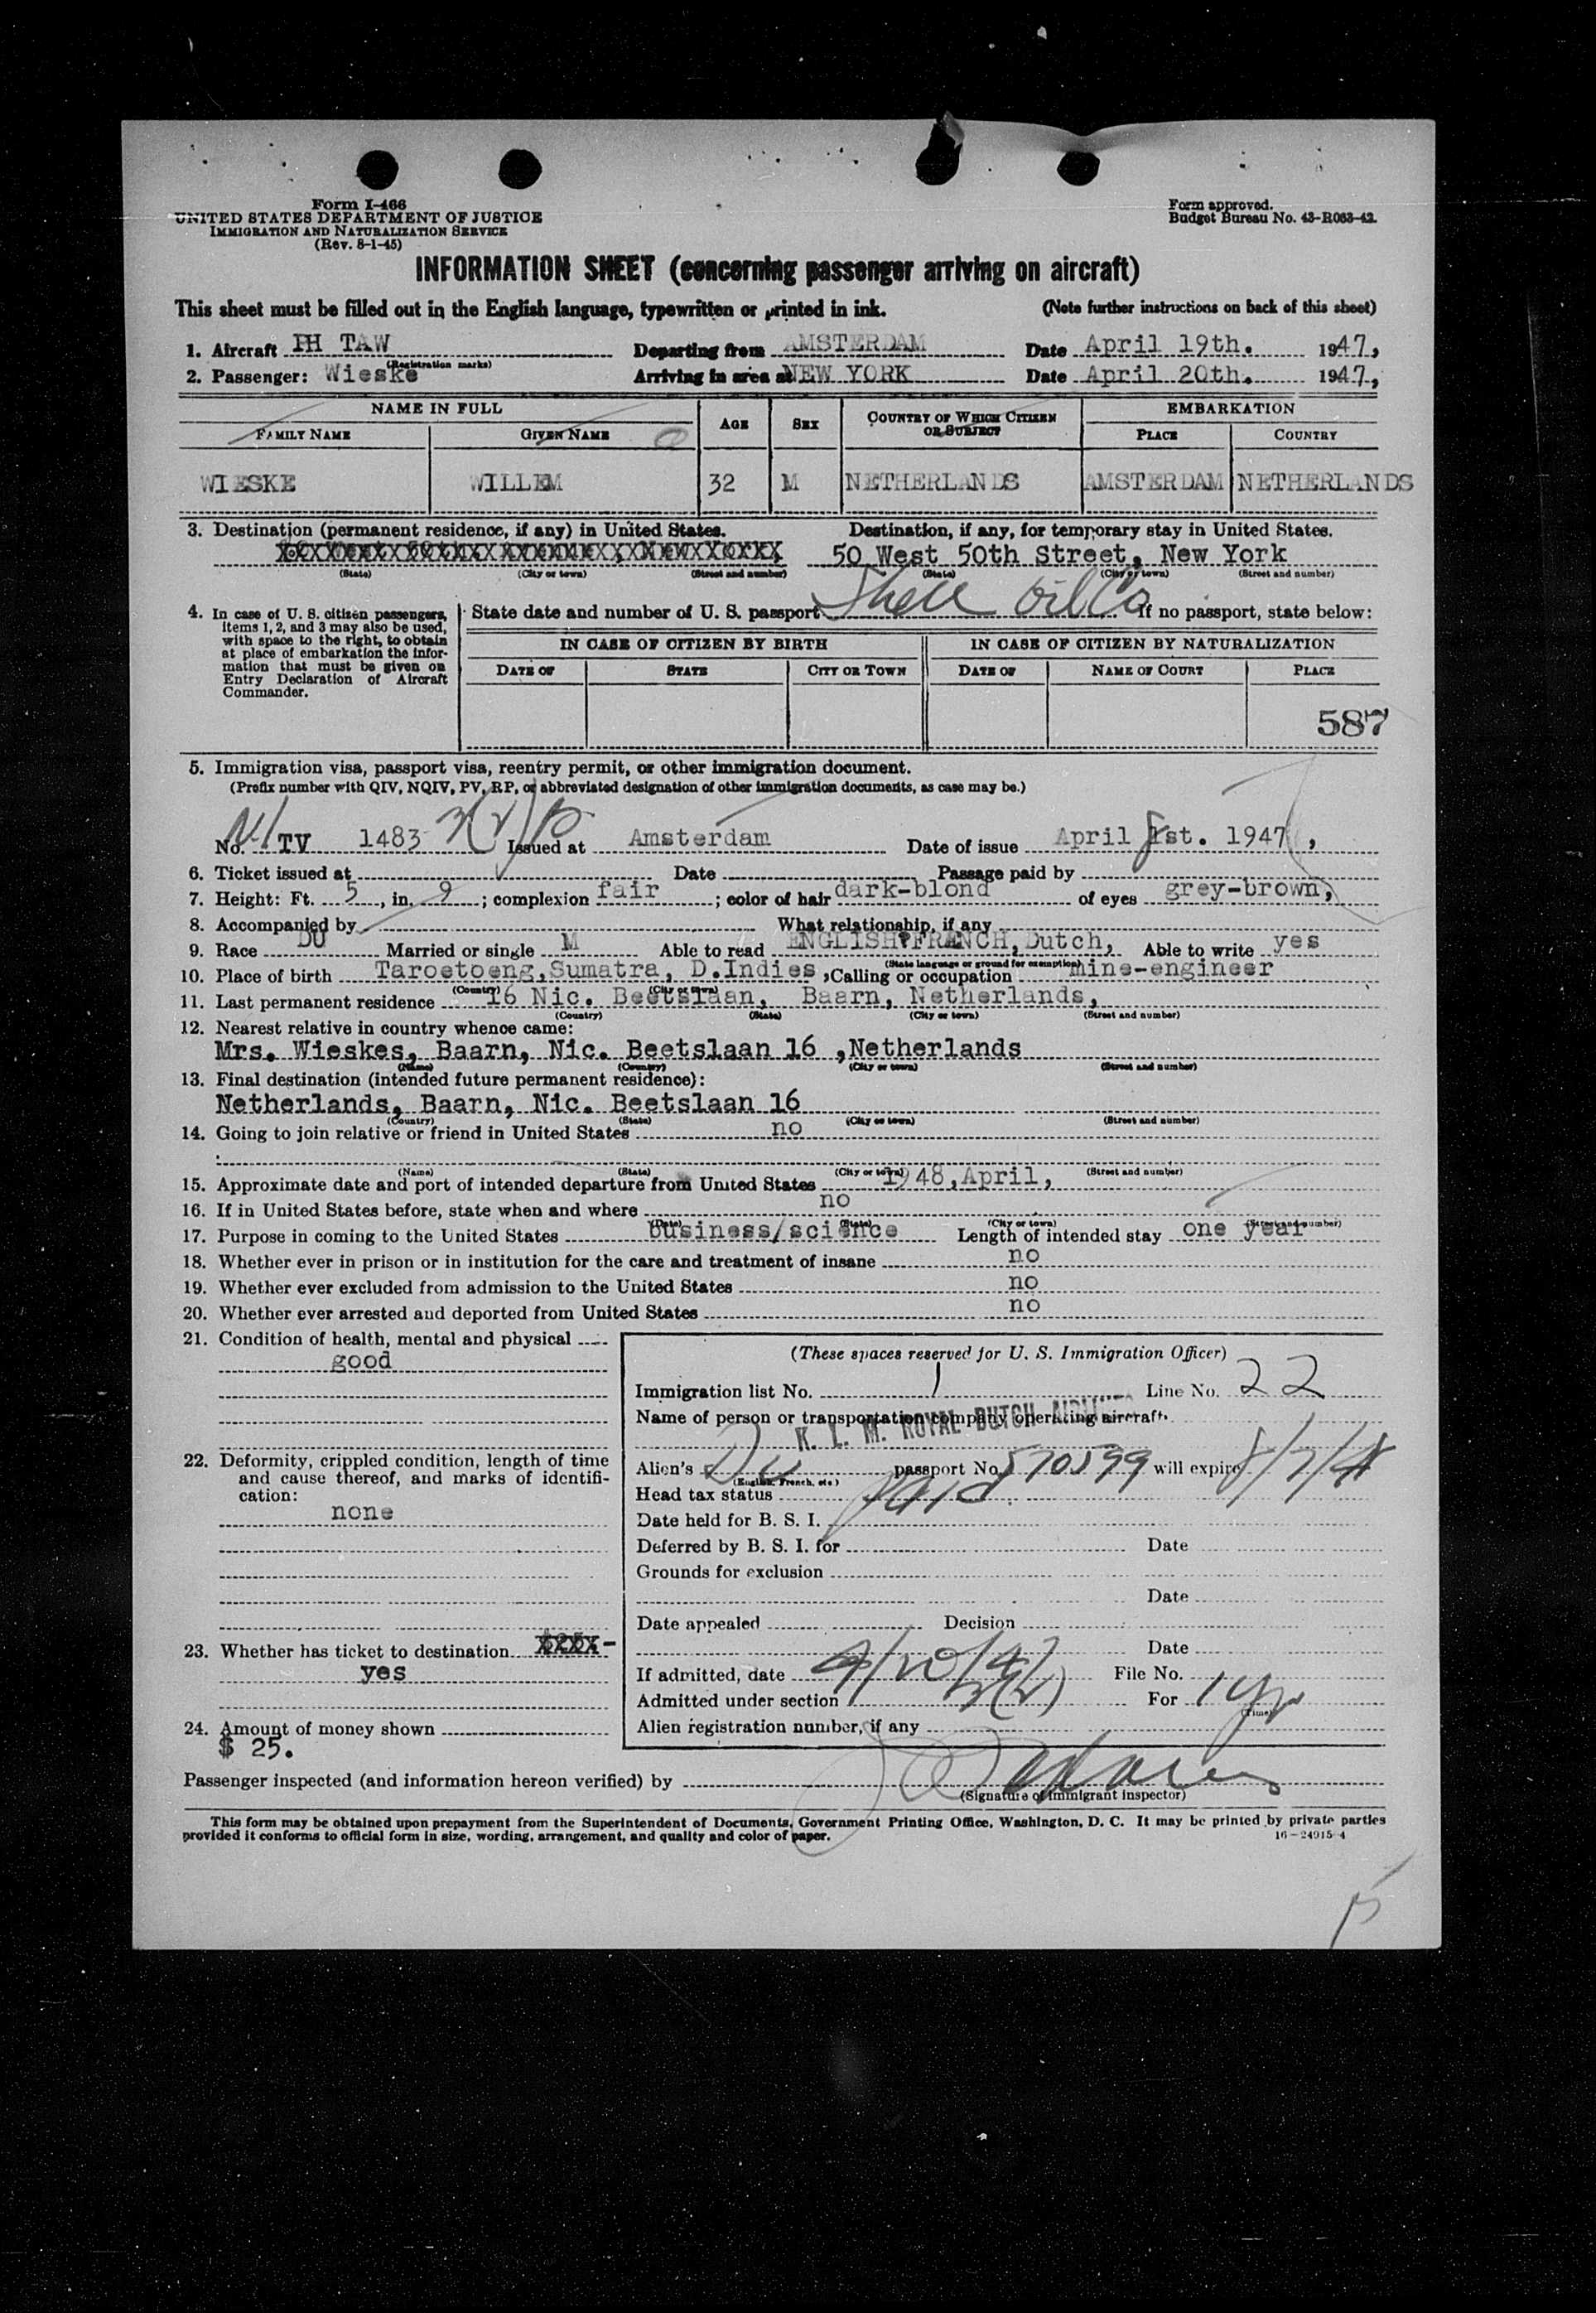 Form I-466
UNITED STATES DEPARTMENT OF JUSTICE
IMMIGRATION AND NATURALIZATION SERVICE
(Rev. 8-1-45)
Form approved.
Budget Bureau No. 43-R063-42.
INFORMATION SHEET (concerning passenger arriving on aircraft)
This sheet must be filled out in the English language, typewritten or printed in ink. (Note further instructions on back of this sheet)
1. Aircraft PH TAW Departing from AMSTERDAM Date April 19th. 1947,
(Registration marks)
2. Passenger: Wieske Arriving in area at NEW YORK Date April 20th. 1947,
NAME IN FULL AGE SEX COUNTRY OF WHICH CITIZEN OR SUBJECT EMBARKATION
FAMILY NAME GIVEN NAME PLACE COUNTRY
WIESKE WILLEM 32 M NETHERLANDS AMSTERDAM NETHERLANDS
3. Destination (permanent residence, if any) in United States. Destination, if any, for temporary stay in United States.
50 West 50th Street, New York
(State) (City or town) (Street and number) (State) (City or town) (Street and number)
4. In case of U. S. citizen passengers, items 1, 2, and 3 may also be used, with space to the right, to obtain at place of embarkation the information that must be given on Entry Declaration of Aircraft Commander.
State date and number of U. S. passport Shell Oil Co If no passport, state below:
IN CASE OF CITIZEN BY BIRTH IN CASE OF CITIZEN BY NATURALIZATION
DATE OF STATE CITY OR TOWN DATE OF NAME OF COURT PLACE
587
5. Immigration visa, passport visa, reentry permit, or other immigration document.
(Prefix number with QIV, NQIV, PV, RP, or abbreviated designation of other immigration documents, as case may be.)
No. TV 1483 3(2) Issued at Amsterdam Date of issue April 1st. 1947,
6. Ticket issued at Date Passage paid by
7. Height: Ft. 5, in. 9; complexion fair; color of hair dark-blond of eyes grey-brown,
8. Accompanied by What relationship, if any
9. Race DU Married or single M Able to read ENGLISH FRANCH, Dutch, Able to write yes
(State language or ground for exemption)
10. Place of birth Taroetoeng, Sumatra, D.Indies, Calling or occupation mine-engineer
(Country) (City or town)
11. Last permanent residence 16 Nic. Beetslaan, Baarn, Netherlands,
(Country) (State) (City or town) (Street and number)
12. Nearest relative in country whence came:
Mrs. Wieskes, Baarn, Nic. Beetslaan 16 ,Netherlands
(Name) (Country) (City or town) (Street and number)
13. Final destination (intended future permanent residence):
Netherlands, Baarn, Nic. Beetslaan 16
(Country) (State) (City or town) (Street and number)
14. Going to join relative or friend in United States no
(Name) (State) (City or town) (Street and number)
15. Approximate date and port of intended departure from United States 1948, April,
16. If in United States before, state when and where no
(Date) (State) (City or town) (Street and number)
17. Purpose in coming to the United States business/science Length of intended stay one year
18. Whether ever in prison or in institution for the care and treatment of insane no
19. Whether ever excluded from admission to the United States no
20. Whether ever arrested and deported from United States no
21. Condition of health, mental and physical
good
22. Deformity, crippled condition, length of time and cause thereof, and marks of identification:
none
23. Whether has ticket to destination
yes
24. Amount of money shown
$ 25.
(These spaces reserved for U. S. Immigration Officer)
Immigration list No. 1 Line No. 22
Name of person or transportation company operating aircraft.
K. L. M. ROYAL DUTCH AIRLINES
Alien's Du passport No. 570599 will expire 8/7/48
(English, French, etc.)
Head tax status paid
Date held for B. S. I.
Deferred by B. S. I. for Date
Grounds for exclusion
Date
Date appealed Decision
Date
If admitted, date 4/20/47 File No.
Admitted under section 3(2) For 1 yr
(Time)
Alien registration number, if any
Passenger inspected (and information hereon verified) by
(Signature of immigrant inspector)
This form may be obtained upon prepayment from the Superintendent of Documents, Government Printing Office, Washington, D. C. It may be printed by private parties
provided it conforms to official form in size, wording, arrangement, and quality and color of paper.
16—24915-4